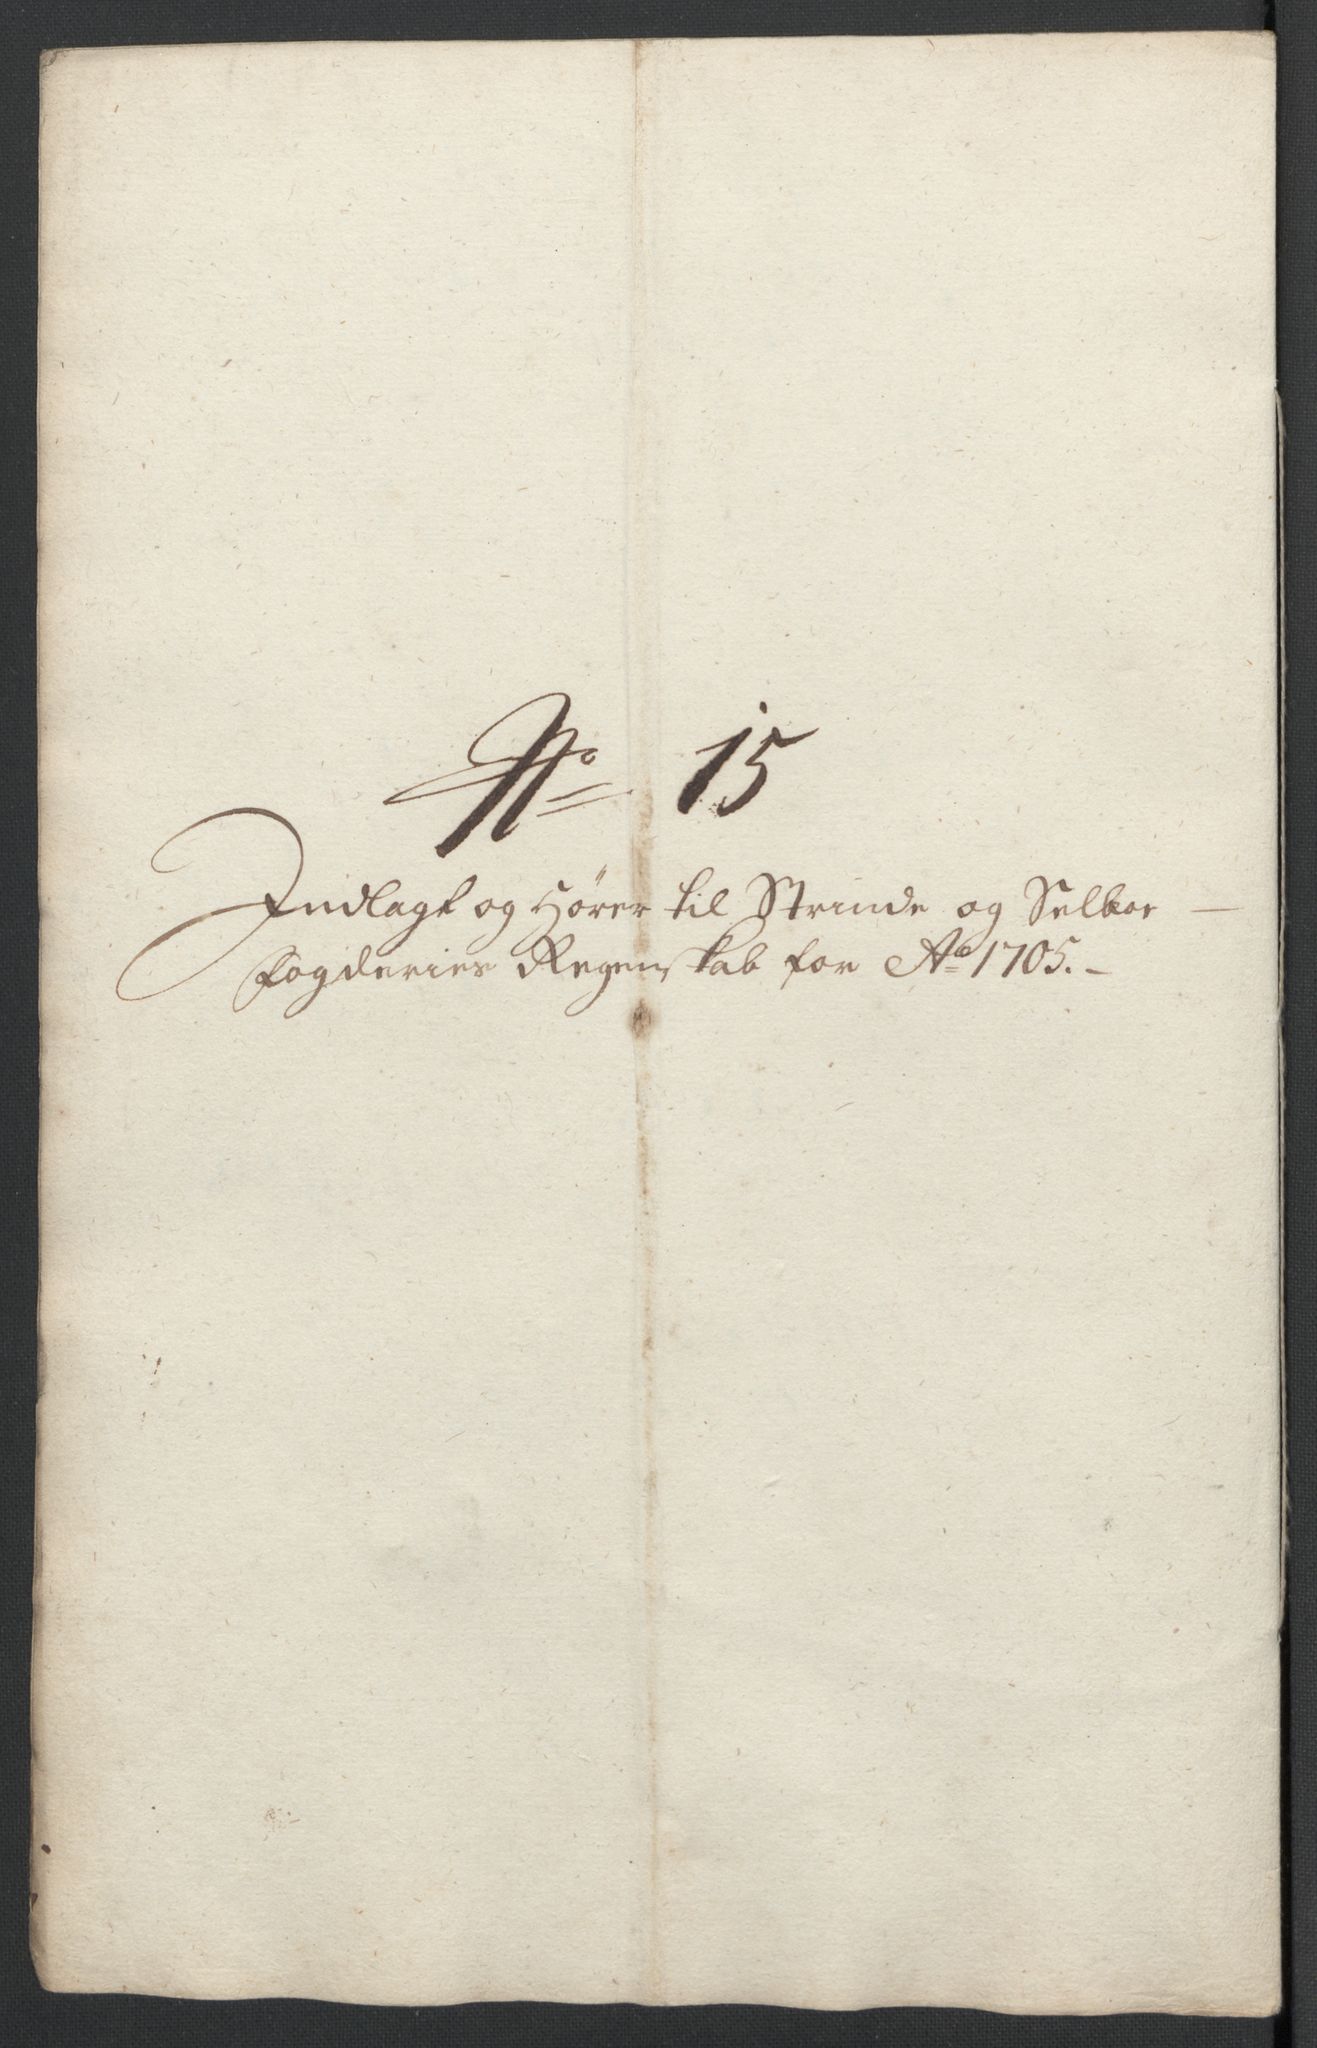 No 15
Indlagt og Hører til Strinde og Selboe
fogderies Regenskab for Ao 1705.